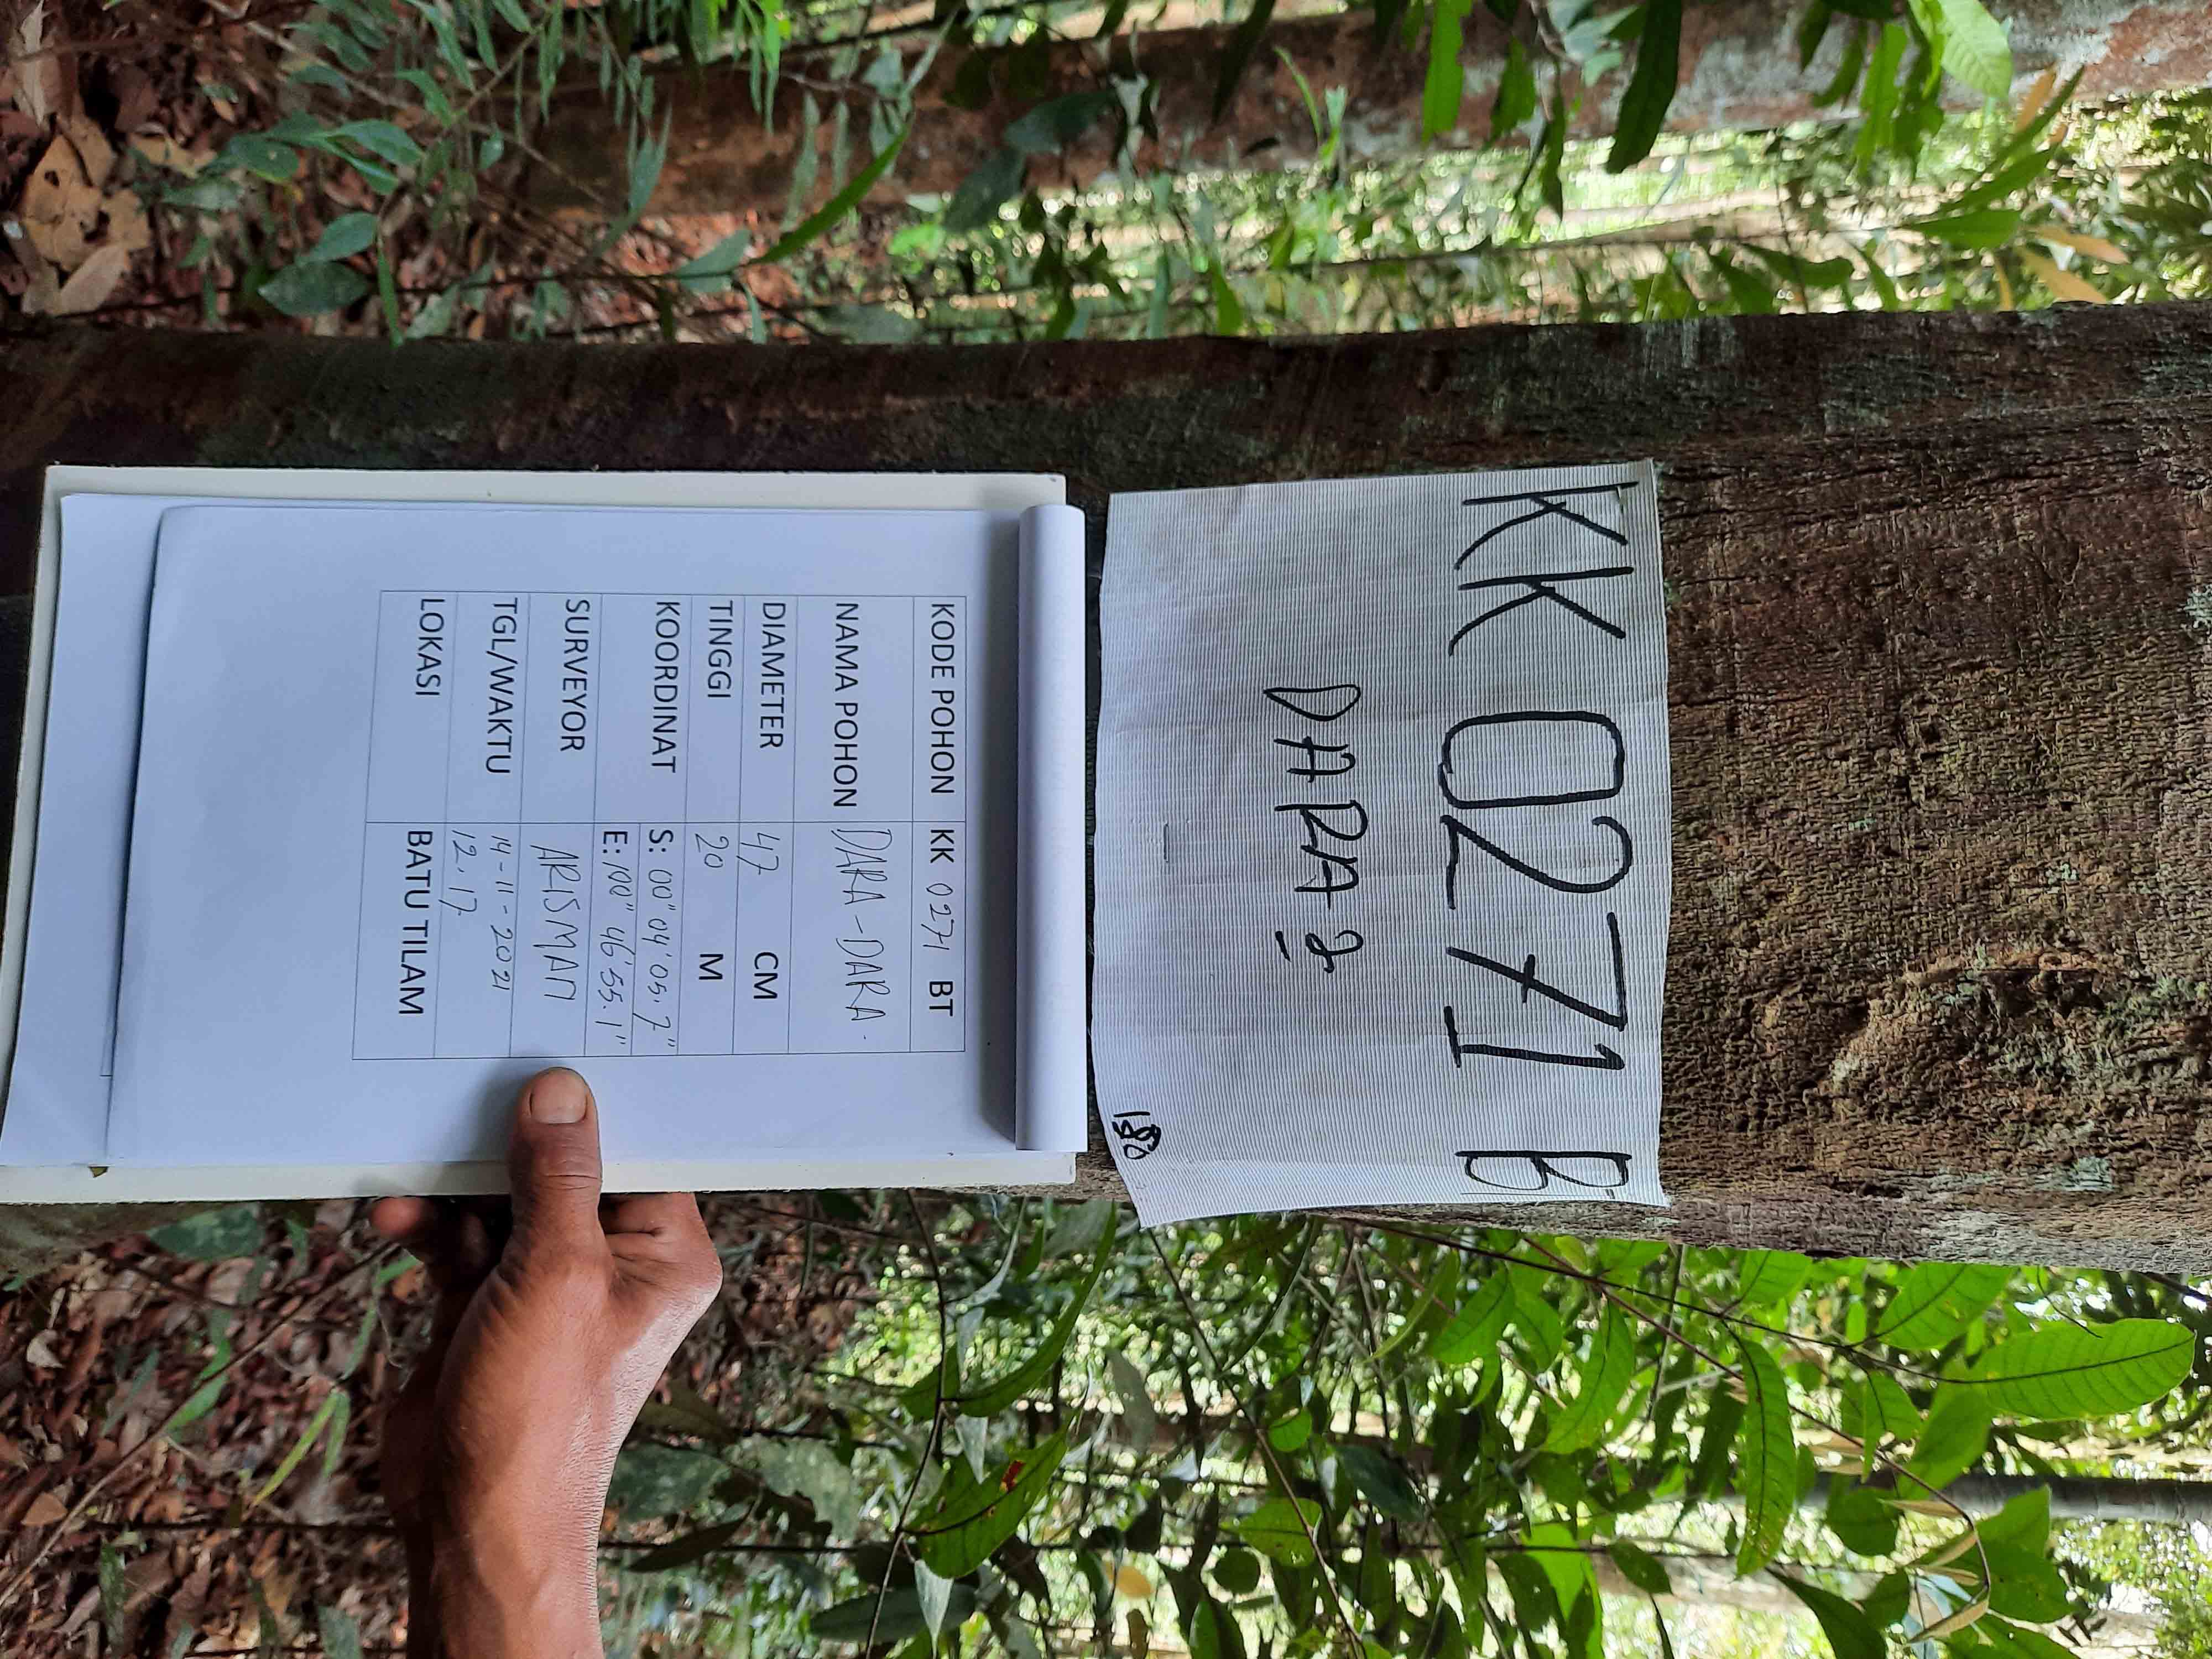 KK 0271 B
DARA 2
180
KODE POHON KK 0271 BT
NAMA POHON DARA-DARA
DIAMETER 47 CM
TINGGI 20 M
KOORDINAT S: 00" 04' 05.7"
E: 100" 46' 55.1"
SURVEYOR ARISMAN
TGL/WAKTU 14-11-2021
12.17
LOKASI BATU TILAM